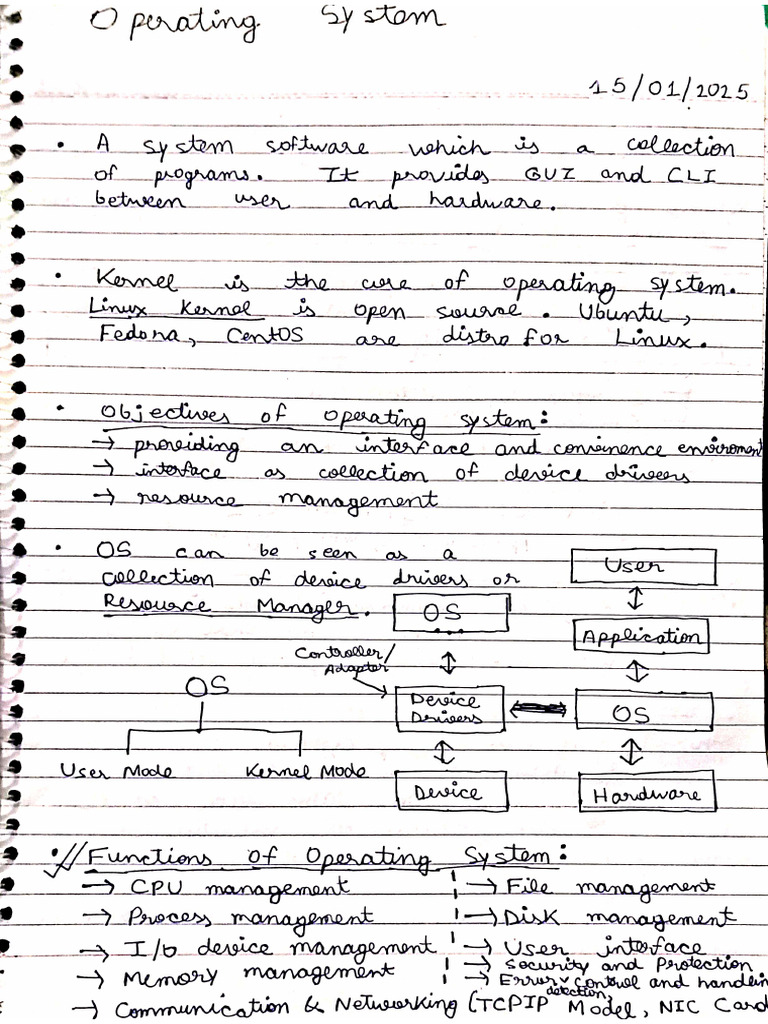 Operating System
15/01/2025
• A system software which is a collection
of programs. It provides GUI and CLI
between user and hardware.
• Kernel is the core of operating system.
Linux Kernel is open source. Ubuntu,
Fedora, CentOS are distro for Linux.
• Objectives of operating system:
→ providing an interface and convinence enviroment
→ interface as collection of device drivers
→ resource management
• OS can be seen as a
collection of device drivers or
Resource Manager.
OS
...
Controller/
Adapter
Device
Drivers
Device
User
Application
OS
Hardware
OS
User Mode Kernel Mode
• Functions of Operating System:
→ CPU management
→ Process management
→ I/O device management
→ Memory management
→ File management
→ Disk management
→ User interface
→ Security and Protection
→ Error detection, control and handlin
→ Communication & Networking (TCPIP Model, NIC Card